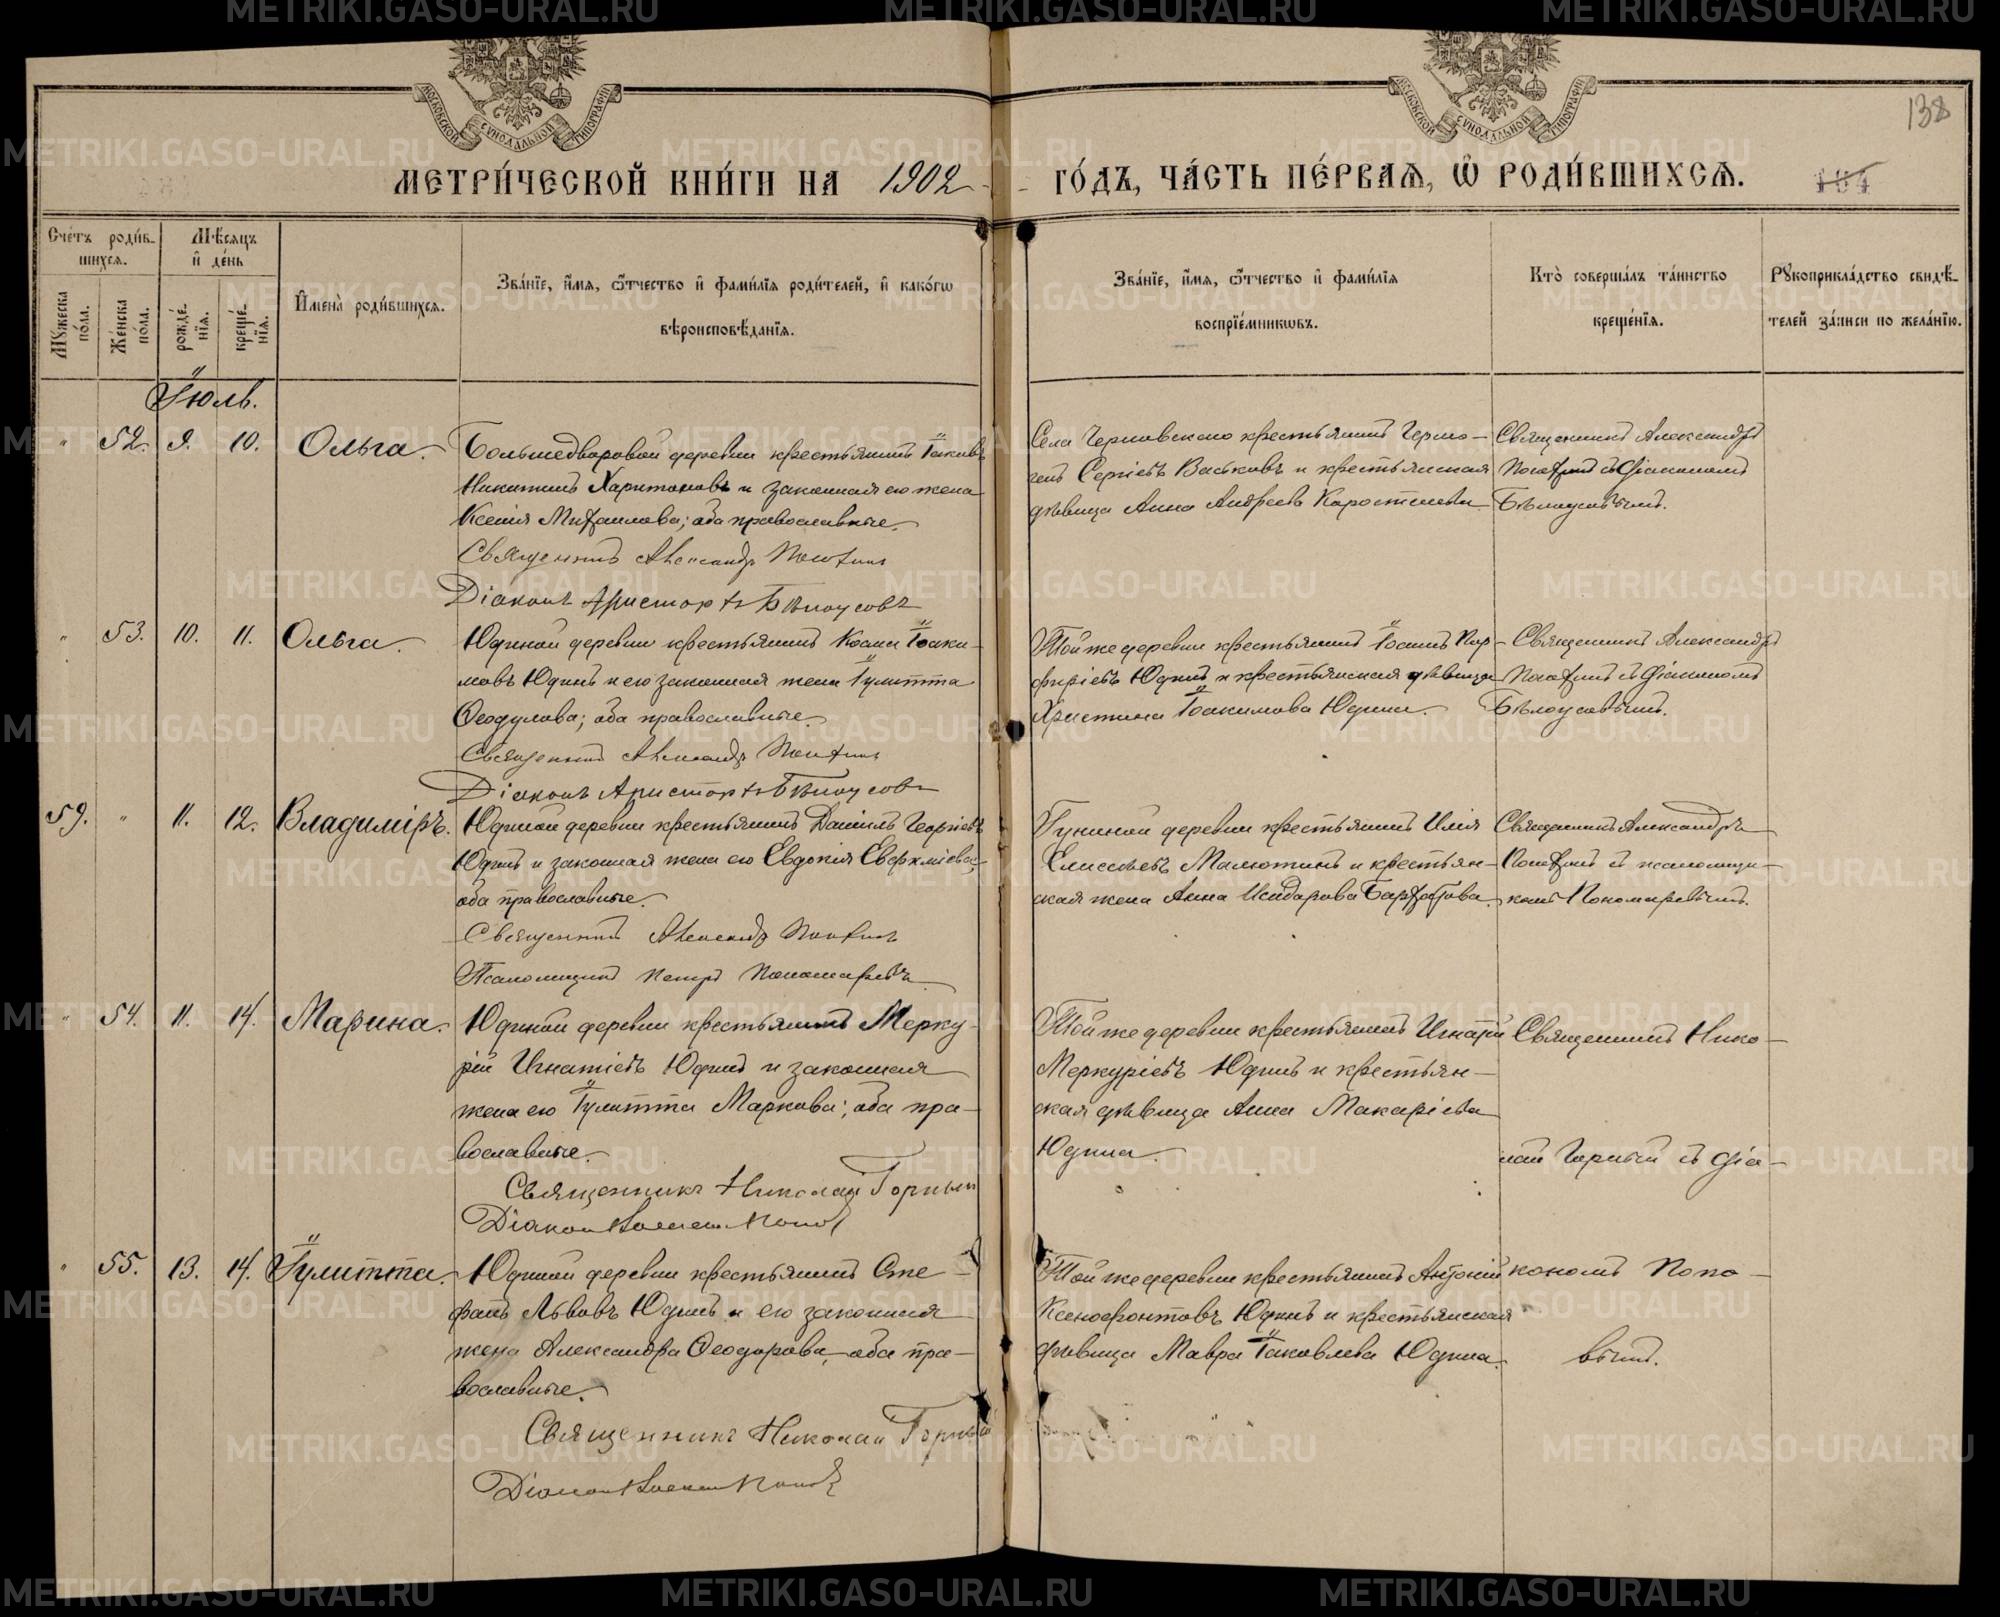 МОСКОВСКОЙ СѴНОДАЛЬНОЙ ТИПОГРАФІИ
МОСКОВСКОЙ СѴНОДАЛЬНОЙ ТИПОГРАФІИ
138
МЕТРИ́ЧЕСКОЙ КНИ́ГИ НА 1902 ГО́ДЪ, ЧА́СТЬ ПЕ́РВАѦ, Ѡ҆ РОДИ́ВШИХСѦ.
184
Сче́тъ роди́в-
шихсѧ.
Мѣ́сѧцъ
и҆ де́нь
Мꙋ́жеска по́ла.
Же́нска по́ла.
рожде́нїѧ.
креще́нїѧ.
И҆мена̀ роди́вшихсѧ.
Зва́нїе, и҆́мѧ, ѻ҆́тчество и҆ фами́лїѧ роди́телей, и҆ како́гѡ
вѣроисповѣ́данїѧ.
Зва́нїе, и҆́мѧ, ѻ҆́тчество и҆ фами́лїѧ
воспрїе́мникѡвъ.
Кто̀ соверша́лъ та́инство
креще́нїѧ.
Рꙋкоприкла́дство свидѣ́-
телей за́писи по жела́нїю.
Іюль.
" 52. 9. 10. Ольга.
Большедворовой деревни крестьянинъ Іаковъ
Никитинъ Харитоновъ и законная его жена
Ксенія Михаилова; оба православные.
Священникъ Александръ
Діаконъ Аристархъ Бѣлоусовъ
Села крестьянинъ
Сергіевъ и крестьянская
дѣвица Анна Андреева
Священникъ Александръ
съ Діакономъ
Бѣлоусовымъ.
" 53. 10. 11. Ольга.
Юдиной деревни крестьянинъ Косма Іоаки-
мовъ Юдинъ и его законная жена Іулитта
Ѳеодулова; оба православные.
Священникъ Александръ
Діаконъ Аристархъ Бѣлоусовъ
Той же деревни крестьянинъ Іоаннъ Пор-
фиріевъ Юдинъ и крестьянская дѣвица
Христина Іоакимова Юдина.
Священникъ Александръ
съ Діакономъ
Бѣлоусовымъ.
59. " 11. 12. Владиміръ.
Юдиной деревни крестьянинъ Даніилъ Георгіевъ
Юдинъ и законная жена его Евдокія
оба православные.
Священникъ Александръ
Псаломщикъ Петръ Пономаревъ
деревни крестьянинъ Илія
Елисеевъ Малютинъ и крестьян-
ская жена Анна Исидорова
Священникъ Александръ
съ псаломщи-
комъ Пономаревымъ.
" 54. 11. 14. Марина.
Юдиной деревни крестьянинъ Мерку-
рій Игнатіевъ Юдинъ и законная
жена его Іулитта Маркова; оба пра-
вославные.
Священникъ Николай Горный
Діаконъ Поповъ
Той же деревни крестьянинъ Игнатій
Меркуріевъ Юдинъ и крестьян-
ская дѣвица Анна Макаріева
Юдина.
Священникъ Нико-
лай Горный съ діа-
" 55. 13. 14. Іулитта.
Юдиной деревни крестьянинъ Сте-
фанъ Львовъ Юдинъ и его законная
жена Александра Ѳеодорова, оба пра-
вославные.
Священникъ Николай Горный
Діаконъ Поповъ
Той же деревни крестьянинъ Антоній
Ксенофонтовъ Юдинъ и крестьянская
дѣвица Мавра Іаковлева Юдина.
кономъ Попо-
вымъ.
METRIKI.GASO-URAL.RU